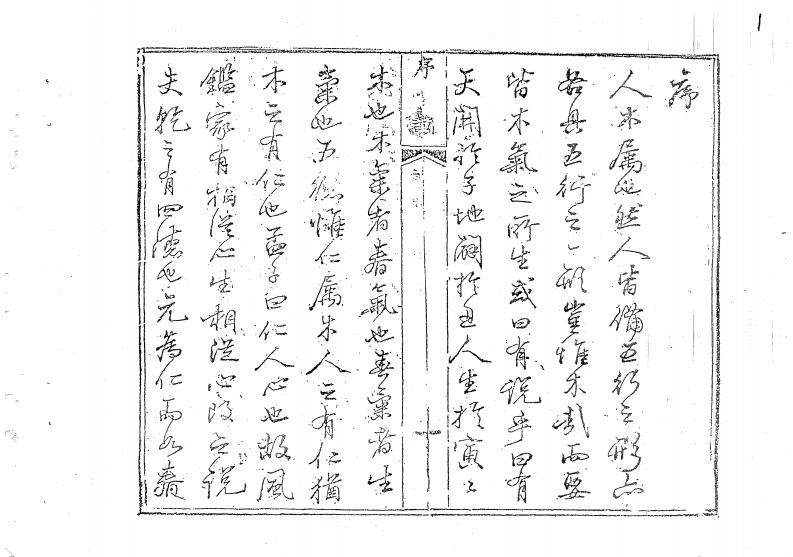 1
序
人木属也然人皆備五行之形亦
各具五行之一形豈惟木哉而要
皆木氣之所生或曰有說乎曰有
天開於子地闢於丑人生於寅〻
序
木也木氣者春氣也春氣者生
氣也五德惟仁属木人之有仁猶
木之有仁也孟子曰仁人心也故風
鑑家有相從心生相從心改之說
夫乾之有四德也元為仁而如春